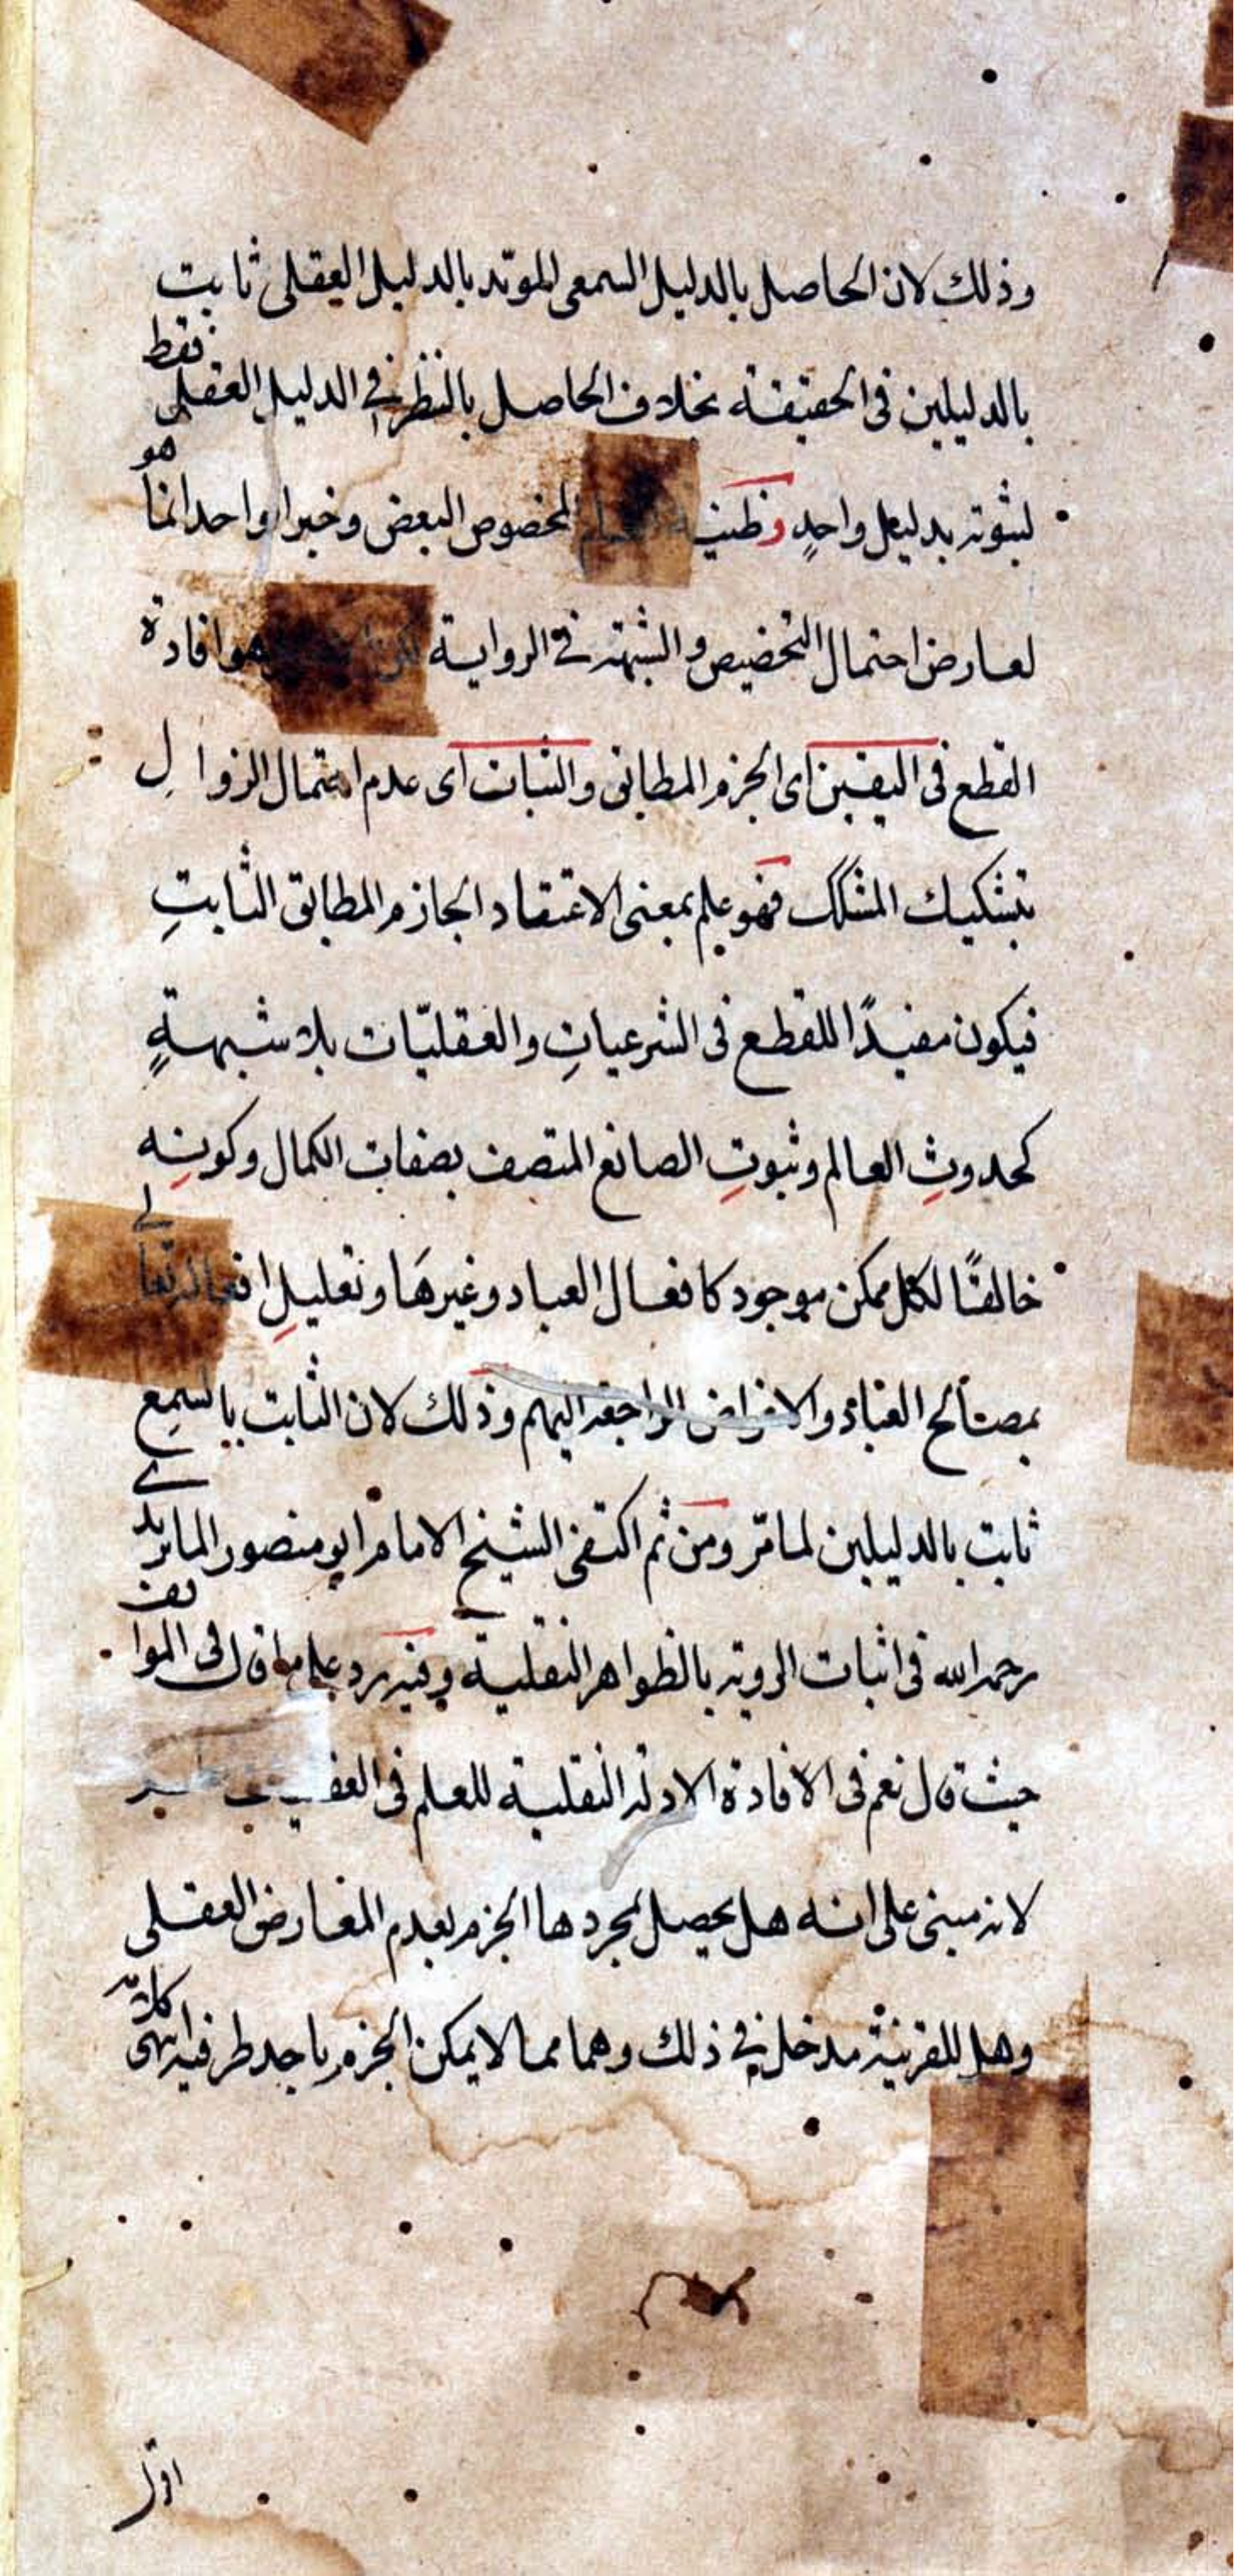 وذلك لان الحاصل بالدليل السمعى المؤيد بالدليل العقلى ثابت
بالدليلين فى الحقيقة بخلاف الحاصل بالنظر فى الدليل العقلى فقط
لثبوته بدليل واحدٍ وظنية المخصوص البعض وخبر الواحد انما هو
لعارض احتمال التخصيص والشبهة فى الرواية هو افادة
القطع فى اليقين اى الجزم المطابق والثبات اى عدم احتمال الزوالِ
بتشكيك المشكك فهو علم بمعنى الاعتقاد الجازم المطابق الثابتِ
فيكون مفيدًا للقطع فى الشرعياتِ والعقليّات بلا شبهةٍ
كحدوثِ العالم وثبوتِ الصانع المتصف بصفات الكمال وكونِه
خالقًا لكل ممكن موجود كافعال العباد وغيرهَا وتعليلِ افعاله تعالى
بمصالح العباد والاغراض الراجعة اليهم وذلك لان الثابت بالسمع
ثابت بالدليلين لما مّر ومن ثم اكتفى الشيخ الامام ابو منصور الماتريدى
رحمه الله فى اثبات الروية بالظواهر النقلية وفيه رد على ما قال فى المواقف
حيث قال نعم فى الافادة الادلة النقلية للعلم فى
لانه مبنى على انه هل يحصل بمجردها الجزم بعدم المعارض العقلى
وهل للقرينة مدخل فى ذلك وهما مما لا يمكن الجزم باحد طرفيه انتهى كلامه
اقول